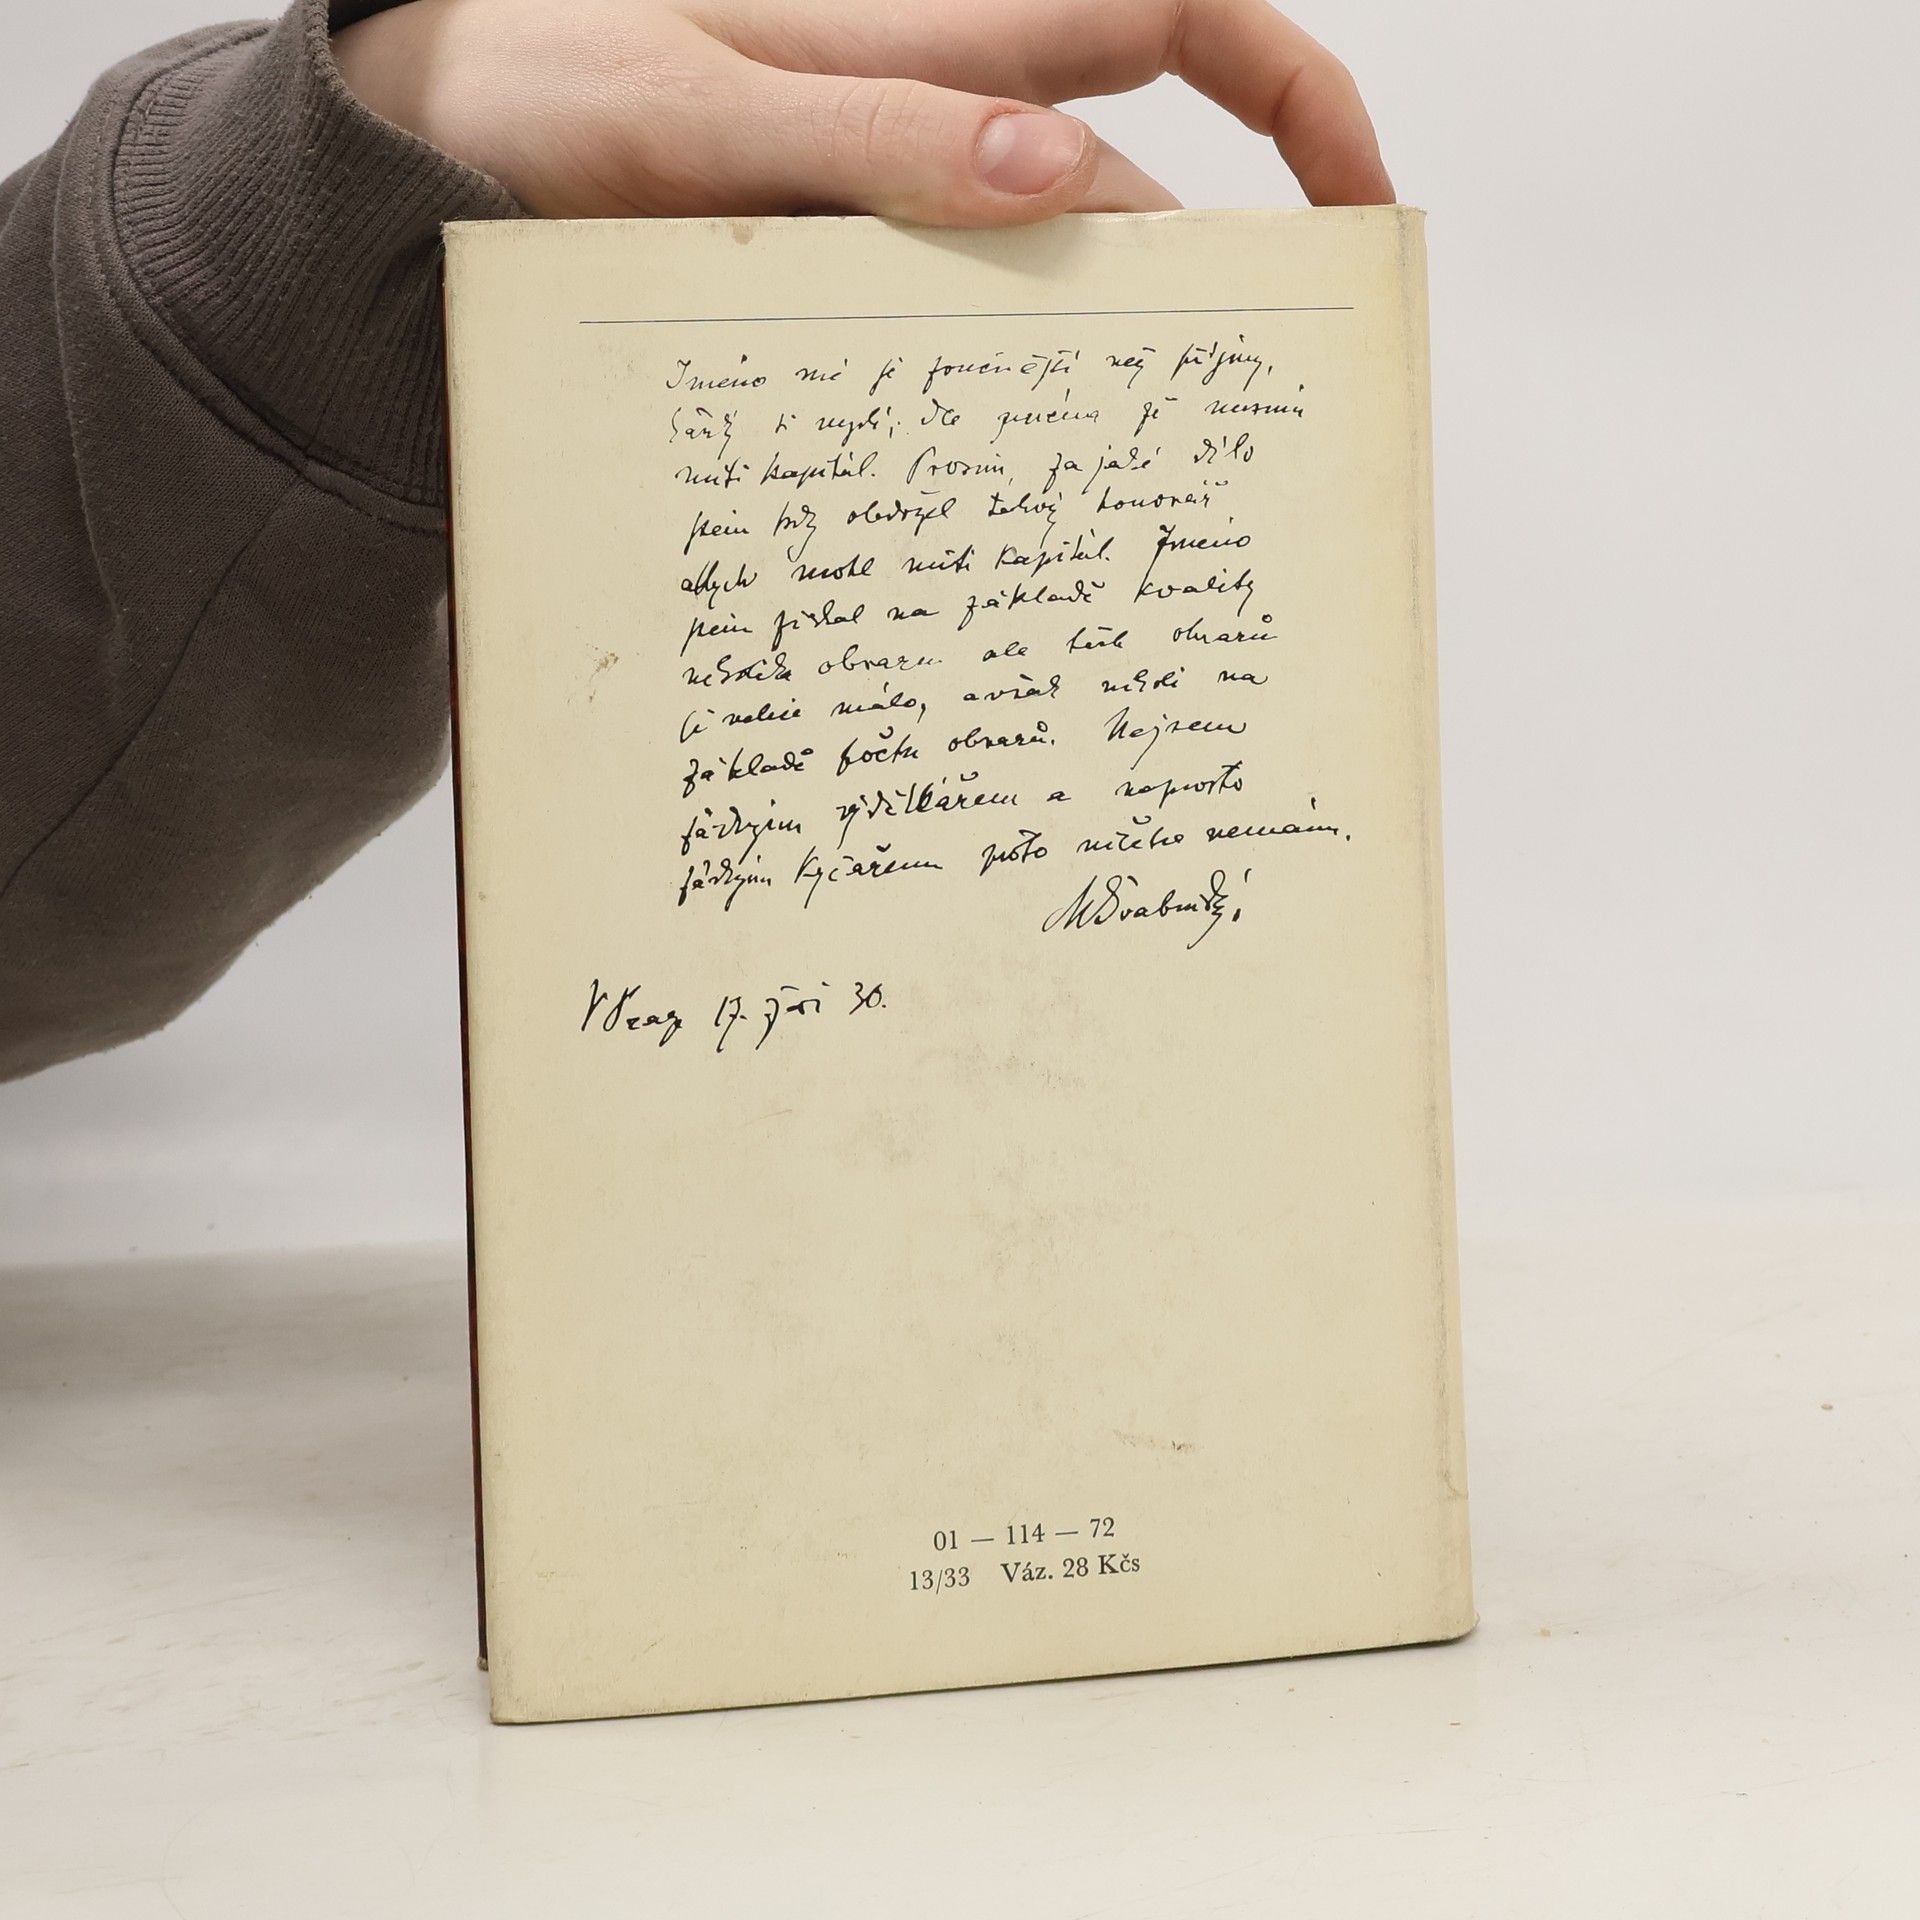 Jméno mé je zvučnější než příjmy,
každý si myslí, dle jména že musím
míti kapitál. Prosím, za jaké dílo
jsem kdy obdržel takový honorář
abych mohl míti kapitál. Jméno
jsem získal na základě kvality
několika obrazu ale těch obrazů
je velice málo, avšak nikoli na
základě počtu obrazů. Nejsem
žádným výdělkářem a naprosto
žádným kyčařem proto ničeho nemám.
MŠvabinský
V Praze 17. září 30.
01 — 114 — 72
13/33 Váz. 28 Kčs